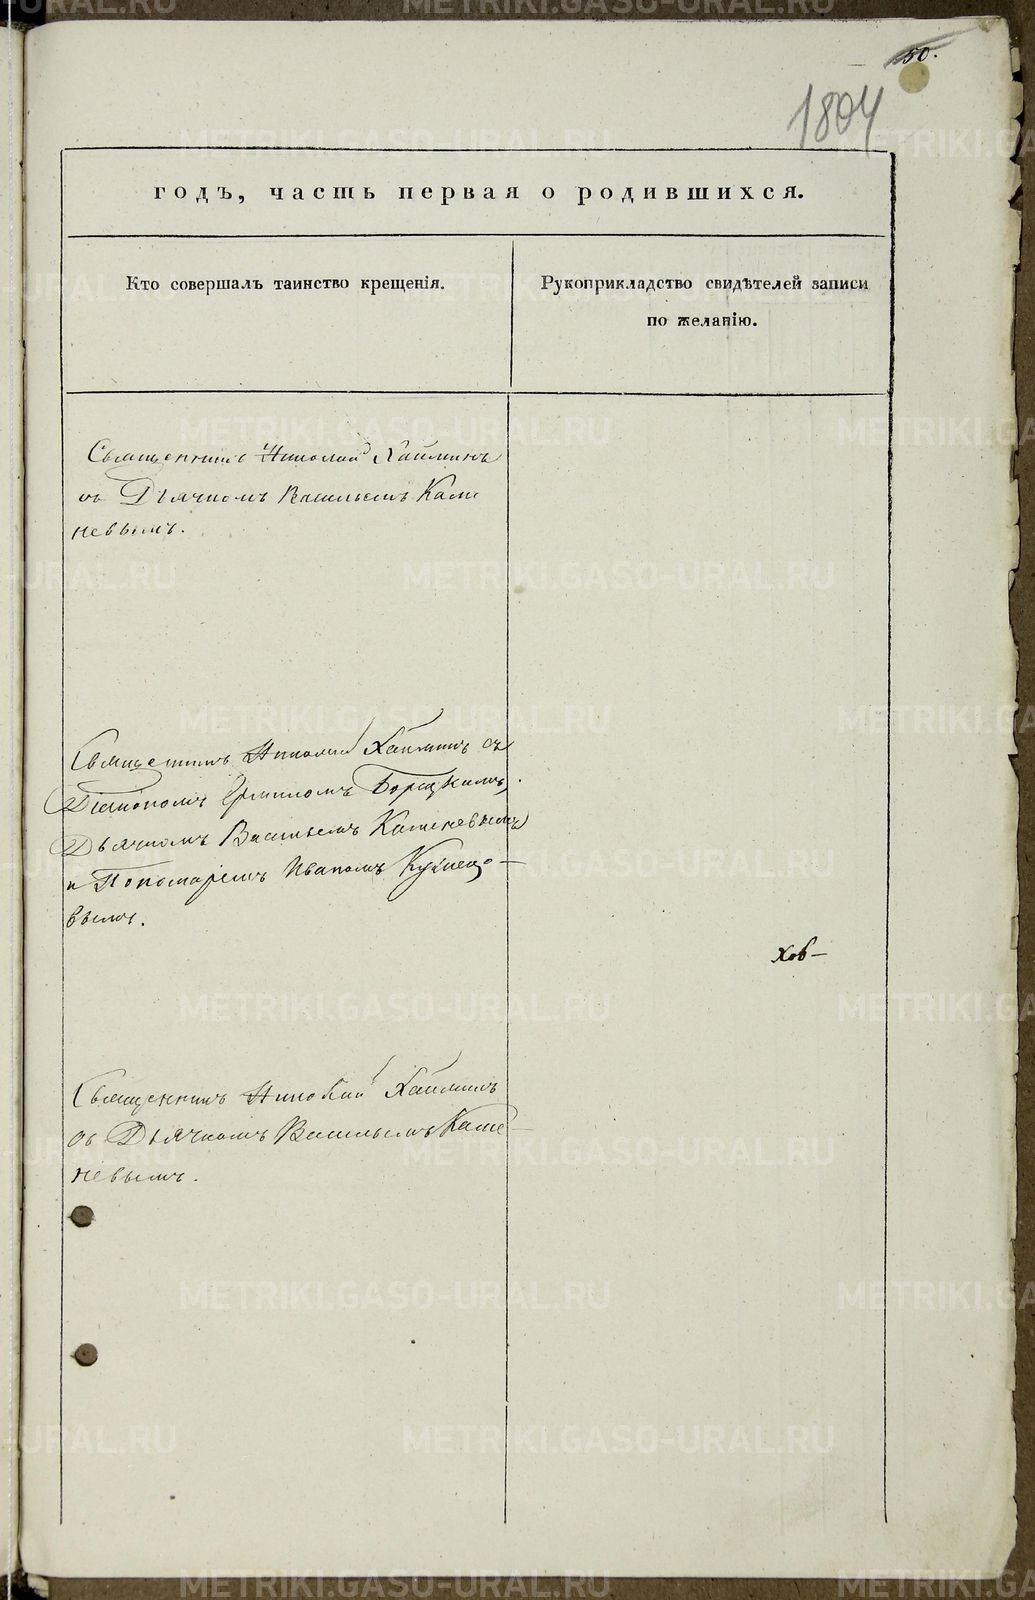 50.
1804
годъ, часть первая о родившихся.
Кто совершалъ таинство крещенія.
Рукоприкладство свидѣтелей записи
по желанію.
Священникъ Николай Хайминъ
съ Дьячкомъ Васильемъ Каме
невымъ.
Священникъ Николай Хайминъ съ
Діакономъ Борецкимъ,
Дьячкомъ Васильемъ Каменевымъ
и Пономаремъ Иваномъ Кузнецо-
вымъ.
Хов-
Священникъ Николай Хайминъ
съ Дьячкомъ Васильемъ Каме-
невымъ.
METRIKI.GASO-URAL.RU